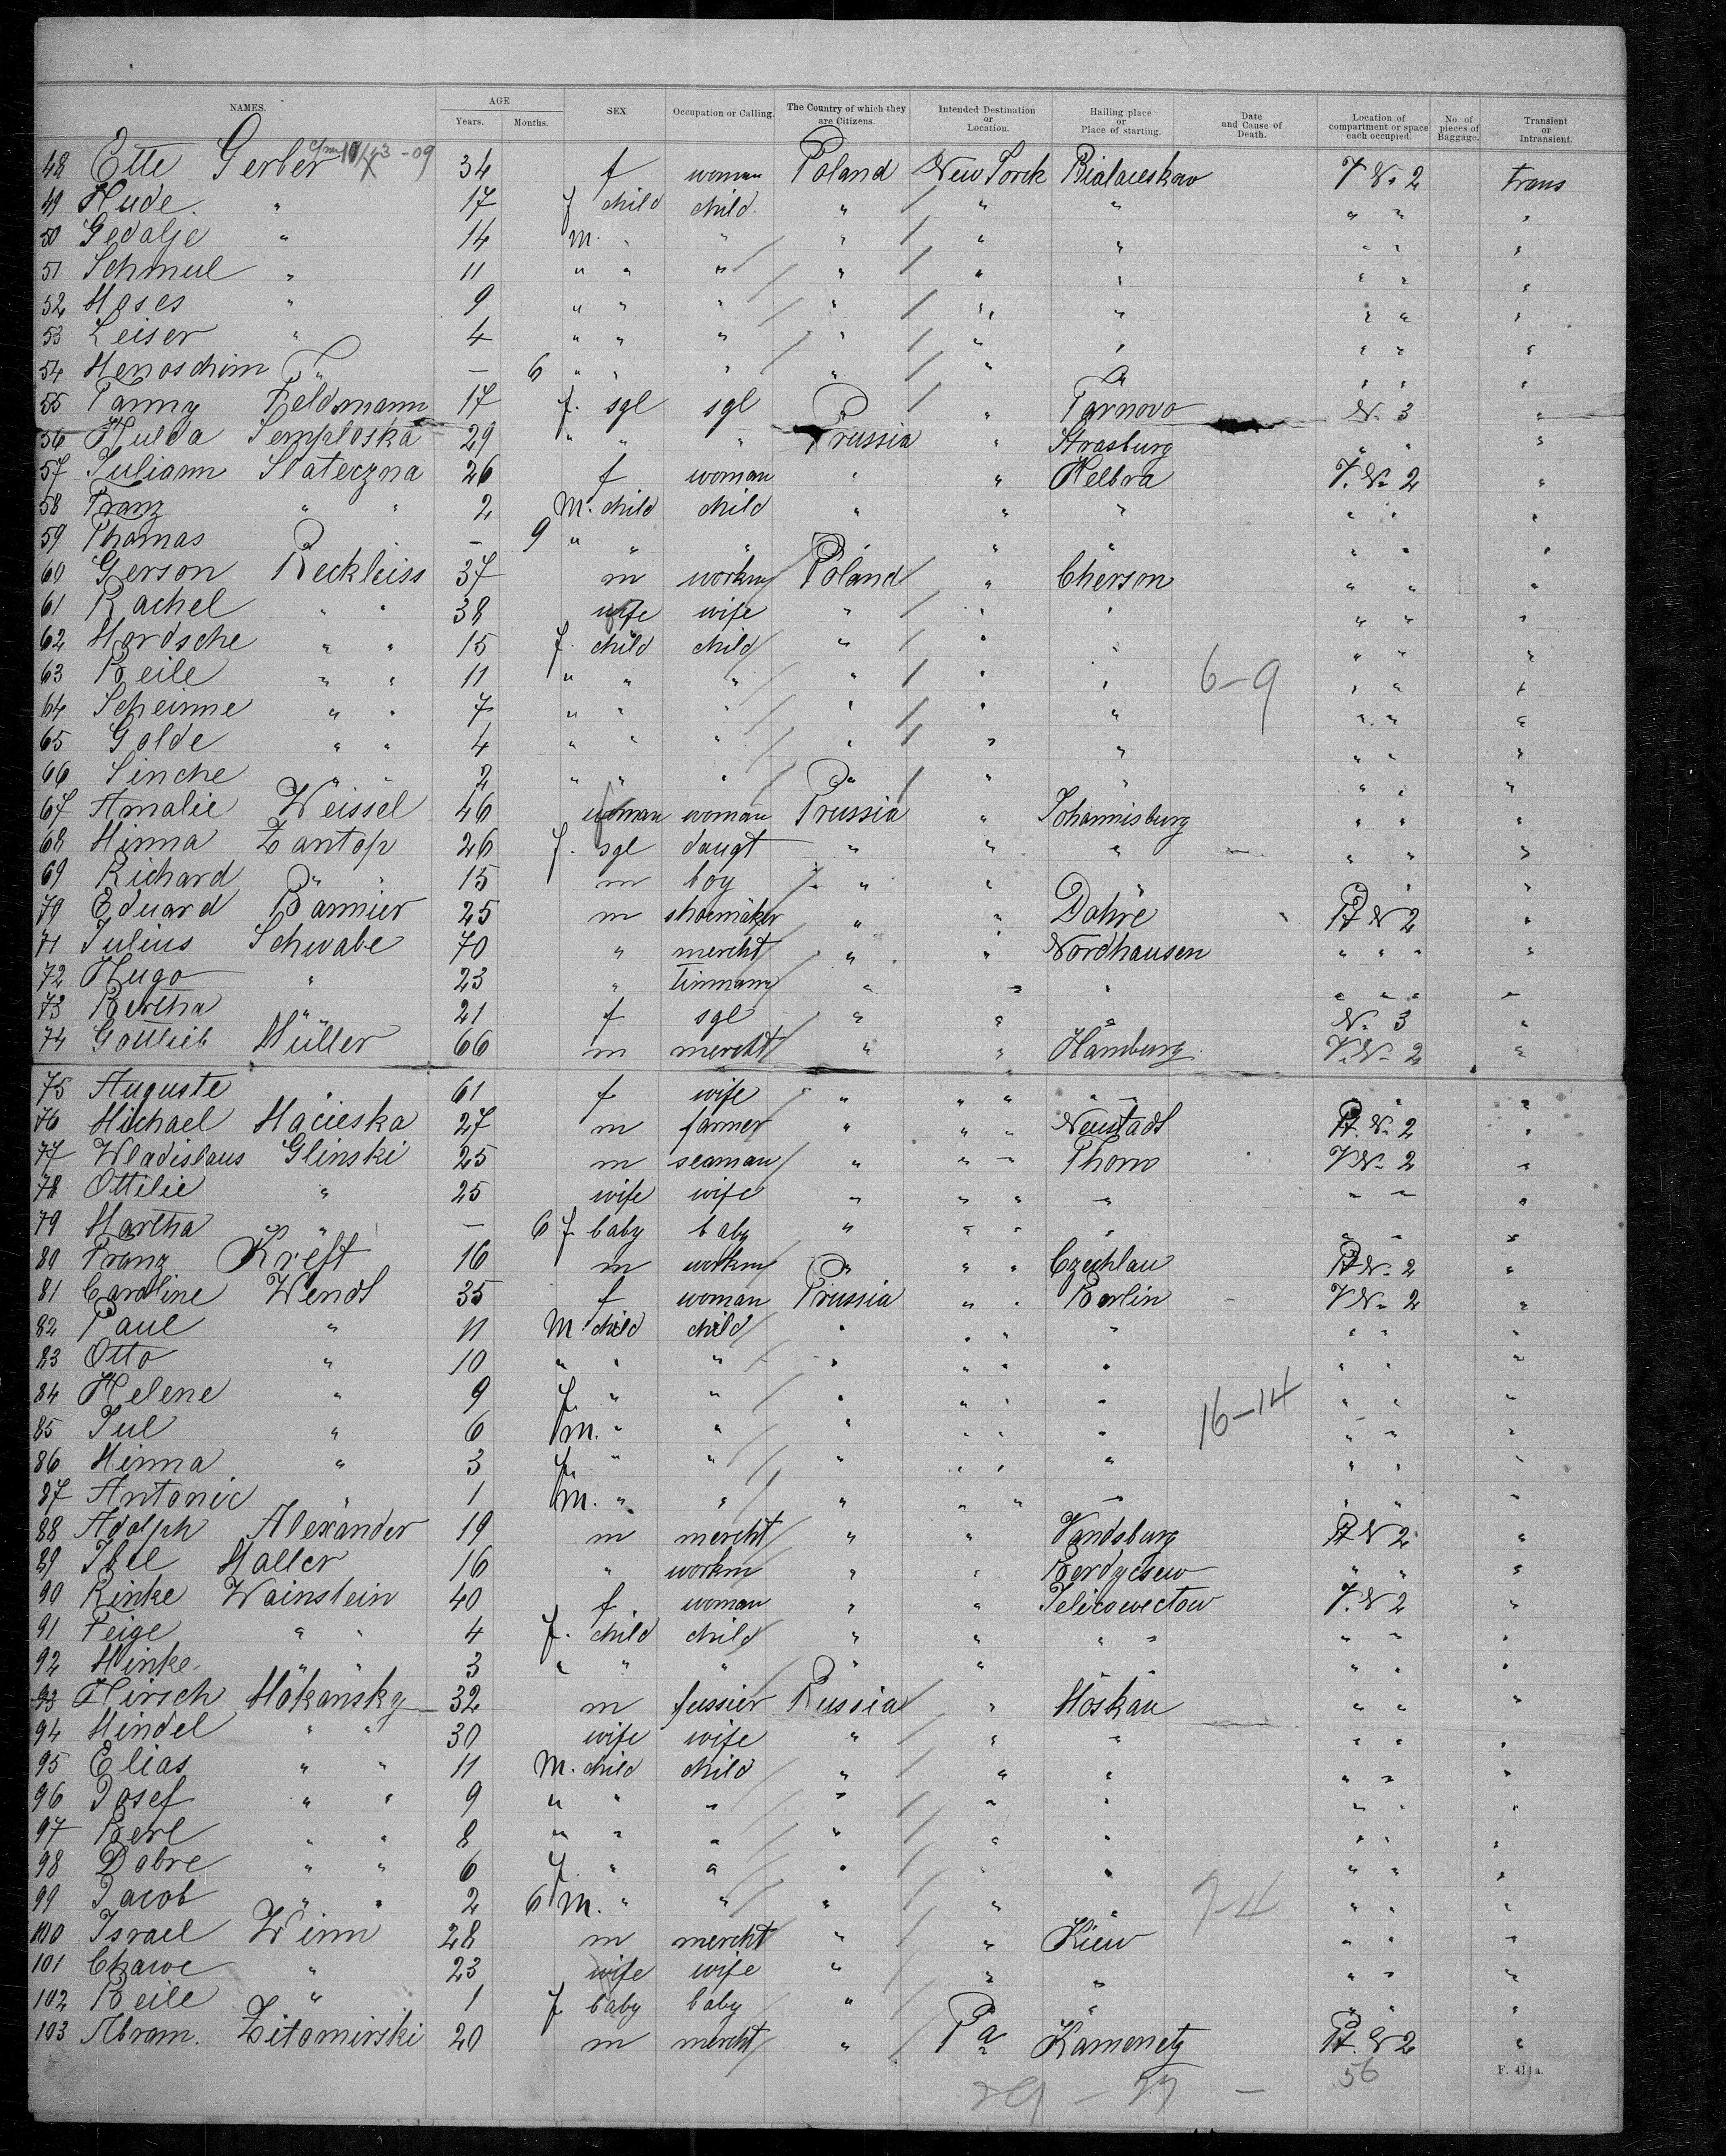 NAMES. AGE Years. Months. SEX Occupation or Calling. The Country of which they are Citizens. Intended Destination or Location. Hailing place or Place of starting. Date and Cause of Death. Location of compartment or space each occupied. No. of pieces of Baggage. Transient or Intransient.
48 Ette Gerber 34 f woman Poland New Yorck V No 2 trans
49 Hude " 17 f child child " " " " " "
50 Gedalje " 14 m. " " " " " " " "
51 Schmul " 11 " " " " " " " " "
52 Moses " 9 " " " " " " " " "
53 Leiser " 4 " " " " " " " " "
54 Menoschim " — 6 " " " " " " " " "
55 Fanny Feldmann 17 f. sgl sgl " " Tarnovo No 3 "
56 Hulda Semploska 29 " " " Prussia " Strasburg " " "
57 Juliann Slateczna 26 f woman " " Helbra V. No 2 "
58 Franz " " 2 M. child child " " " " " "
59 Thomas " — 9 " " " " " " " " "
60 Gerson Reckleiss 37 m workm Poland " Cherson " " "
61 Rachel " " 38 wife wife " " " " " "
62 Mordsche " " 15 f. child child " " " " " "
63 Beile " " 11 " " " " " " 6-9 " " "
64 Scheinne " " 7 " " " " " " " " "
65 Golde " " 4 " " " " " " " " "
66 Sinche " " 2 " " " " " " " " "
67 Amalie Weissel 46 woman woman Prussia " Johannisburg " " "
68 Minna Zantop 26 f. sgl daugt " " " " " "
69 Richard " " 15 m boy " " " " "
70 Eduard Bannier 25 m shoemaker " " Dahre Pt No 2 "
71 Julius Schwabe 70 " mercht " " Nordhausen " " " "
72 Hugo " 23 " tinmann " " " " " " "
73 Bertha " 21 f sgl " " " No 3 "
74 Gottlieb Müller 66 m mercht " " Hamburg V. No 2 "
75 Auguste " 61 f wife " " " " " " "
76 Michael Macieska 27 m farmer " " " Neustadt Pt. No 2 "
77 Wladislaus Glinski 25 m seaman " " " Thorn V No 2 "
78 Ottilie " 25 wife wife " " " " " " "
79 Martha " — 6 f. baby baby " " " " " " "
80 Franz Kreft 16 m workm " " " Czechlau Pt No 2 "
81 Caroline Wendt 35 f woman Prussia " " Berlin V No 2 "
82 Paul " 11 M. child child " " " " " " "
83 Otto " 10 " " " " " " " " " "
84 Helene " 9 f. " " " " " " 16-14 " " "
85 Jul " 6 m. " " " " " " " " "
86 Minna " 3 f. " " " " " " " " "
87 Antonie " 1 m. " " " " " " " " "
88 Adolph Alexander 19 m mercht " " Vandsburg Pt No 2 "
89 Haller 16 " workm " " " " "
90 Rinke Wainstein 40 f woman " " V. No 2 "
91 Feige " " 4 f. child child " " " " " " "
92 Minke " " 3 " " " " " " " " " "
93 Hirsch Mokansky 32 m Russia " Moskau " " "
94 Mindel " " 30 wife wife " " " " " "
95 Elias " " 11 M. child child " " " " " "
96 Josef " " 9 " " " " " " " " "
97 Berl " " 8 " " " " " " " " "
98 Dobre " " 6 f. " " " " " " " "
99 Jacob " " 2 6 m. " " " " " 7-4 " " "
100 Israel Winn 28 m mercht " " Kiew " " "
101 Chawe " 23 wife wife " " " " " "
102 Beile " 1 f baby baby " " " " " "
103 Abram. Zitomirski 20 m mercht " Pa Kamenetz Pt. No 2 "
56 F. 414a.